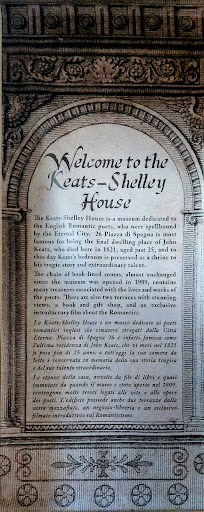 Welcome to the
Keats-Shelley
House
The Keats-Shelley House is a museum dedicated to
the English Romantic poets, who were spellbound
by the Eternal City. 26 Piazza di Spagna is most
famous for being the final dwelling place of John
Keats, who died here in 1821, aged just 25, and to
this day Keats's bedroom is preserved as a shrine to
his tragic story and extraordinary talent.
The chain of book-lined rooms, almost unchanged
since the museum was opened in 1909, contains
many treasures associated with the lives and works of
the poets. There are also two terraces with stunning
views, a book and gift shop, and an exclusive
introductory film about the Romantics.
La Keats-Shelley House è un museo dedicato ai poeti
romantici inglesi che rimasero stregati dalla Città
Eterna. Piazza di Spagna 26 è infatti famosa come
l'ultima residenza di John Keats, che vi morì nel 1821
a poco più di 25 anni, e tutt'oggi la sua camera da
letto è conservata in memoria della sua storia tragica
e del suo talento straordinario.
Le stanze della casa, avvolte da file di libri e quasi
immutate da quando il museo è stato aperto nel 1909,
contengono molti tesori legati alle vite e alle opere
dei poeti. L'edificio possiede anche due terrazze dalle
viste mozzafiato, un negozio-libreria e un esclusivo
filmato introduttivo sul Romanticismo.